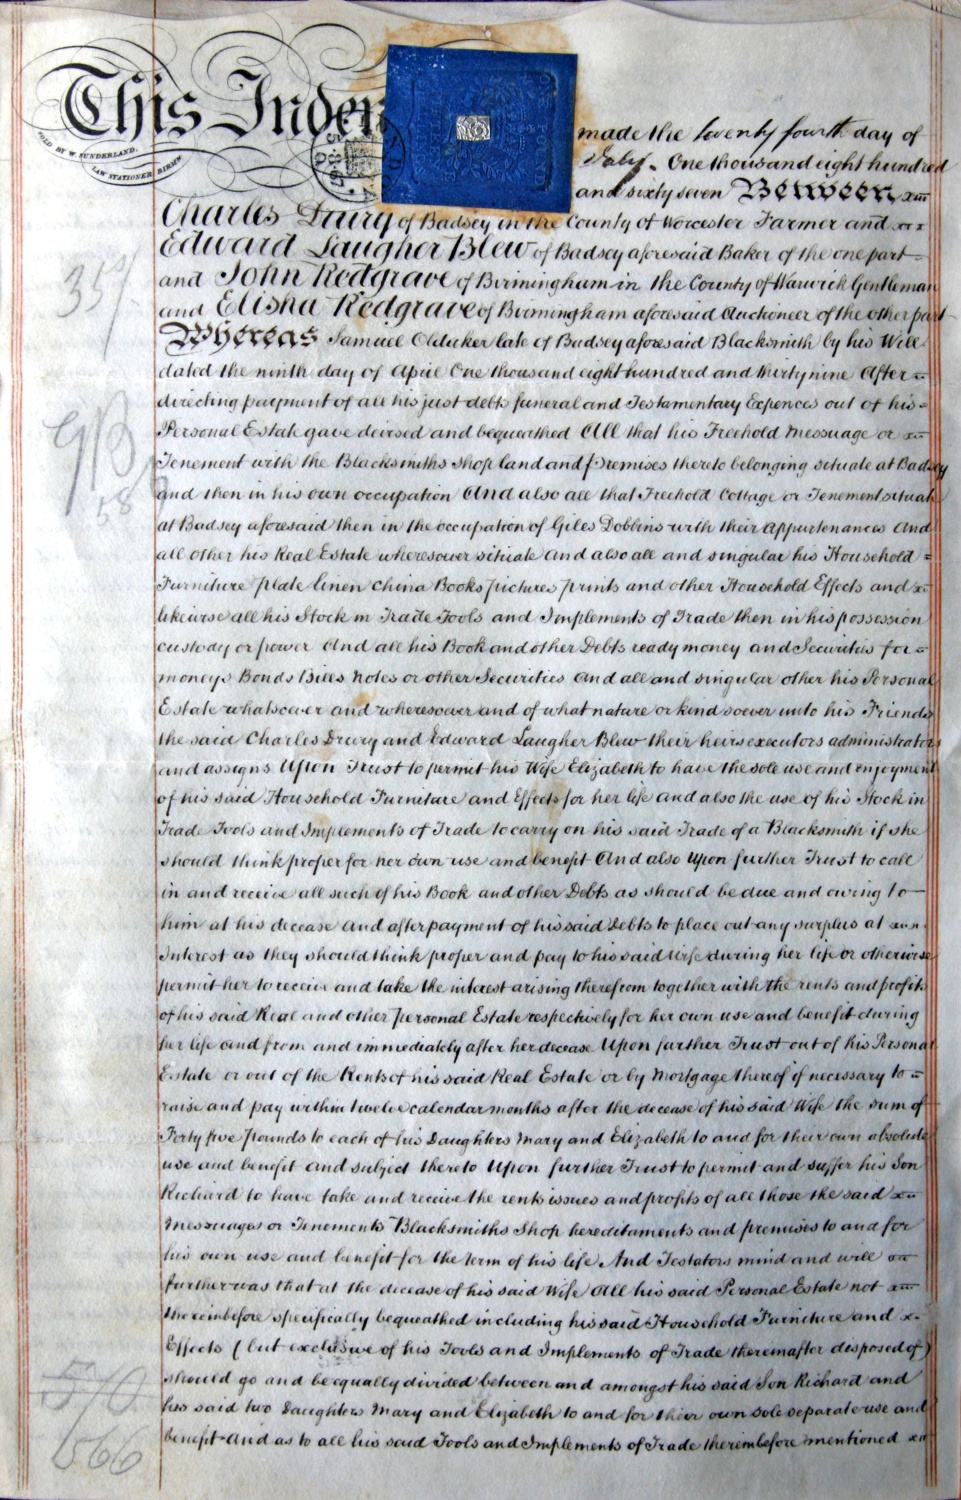 This Inden
SOLD BY W. SUNDERLAND,
LAW STATIONER BIRMM
ONE POUND
made the twenty fourth day of
July. One thousand eight hundred
and sixty seven Between
Charles Drury of Badsey in the County of Worcester Farmer and
Edward Laugher Blew of Badsey aforesaid Baker of the one part
and John Redgrave of Birmingham in the County of Warwick Gentleman
and Elisha Redgrave of Birmingham aforesaid Auctioneer of the other part
Whereas Samuel Oldaker late of Badsey aforesaid Blacksmith by his Will
dated the ninth day of April One thousand eight hundred and thirty nine After
directing payment of all his just debts funeral and Testamentary Expences out of his
Personal Estate gave devised and bequeathed All that his Freehold Messuage or
Tenement with the Blacksmiths Shop land and premises thereto belonging situate at Badsey
and then in his own occupation And also all that Freehold Cottage or Tenement situate
at Badsey aforesaid then in the occupation of Giles Dobbins with their Appurtenances And
all other his Real Estate wheresoever situate And also all and singular his Household
Furniture plate linen China Books pictures prints and other Household Effects and
likewise all his Stock in Trade Tools and Implements of Trade then in his possession
custody or power And all his Book and other Debts ready money and Securities for
moneys Bonds Bills Notes or other Securities And all and singular other his Personal
Estate whatsoever and wheresoever and of what nature or kind soever unto his Friends
the said Charles Drury and Edward Laugher Blew their heirs executors administrators
and assigns Upon Trust to permit his Wife Elizabeth to have the sole use and enjoyment
of his said Household Furniture and Effects for her life and also the use of his Stock in
Trade Tools and Implements of Trade to carry on his said Trade of a Blacksmith if she
should think proper for her own use and benefit And also Upon further Trust to call
in and receive all such of his Book and other Debts as should be due and owing to
him at his decease And after payment of his said Debts to place out any surplus at
Interest as they should think proper and pay to his said Wife during her life or otherwise
permit her to receive and take the interest arising therefrom together with the rents and profits
of his said Real and other Personal Estate respectively for her own use and benefit during
her life And from and immediately after her decease Upon further Trust out of his Personal
Estate or out of the Rents of his said Real Estate or by Mortgage thereof if necessary to
raise and pay within twelve calendar months after the decease of his said Wife the sum of
Forty five pounds to each of his Daughters Mary and Elizabeth to and for their own absolute
use and benefit And subject thereto Upon further Trust to permit and suffer his Son
Richard to have take and receive the rents issues and profits of all those the said
Messuages or Tenements Blacksmiths Shop hereditaments and premises to and for
his own use and benefit for the term of his life And Testators mind and will
further was that at the decease of his said Wife All his said Personal Estate not
thereinbefore specifically bequeathed including his said Household Furniture and
Effects (but exclusive of his Tools and Implements of Trade thereinafter disposed of)
should go and be equally divided between and amongst his said Son Richard and
his said two Daughters Mary and Elizabeth to and for their own sole separate use and
benefit And as to all his said Tools and Implements of Trade thereinbefore mentioned
35/
58
570
566